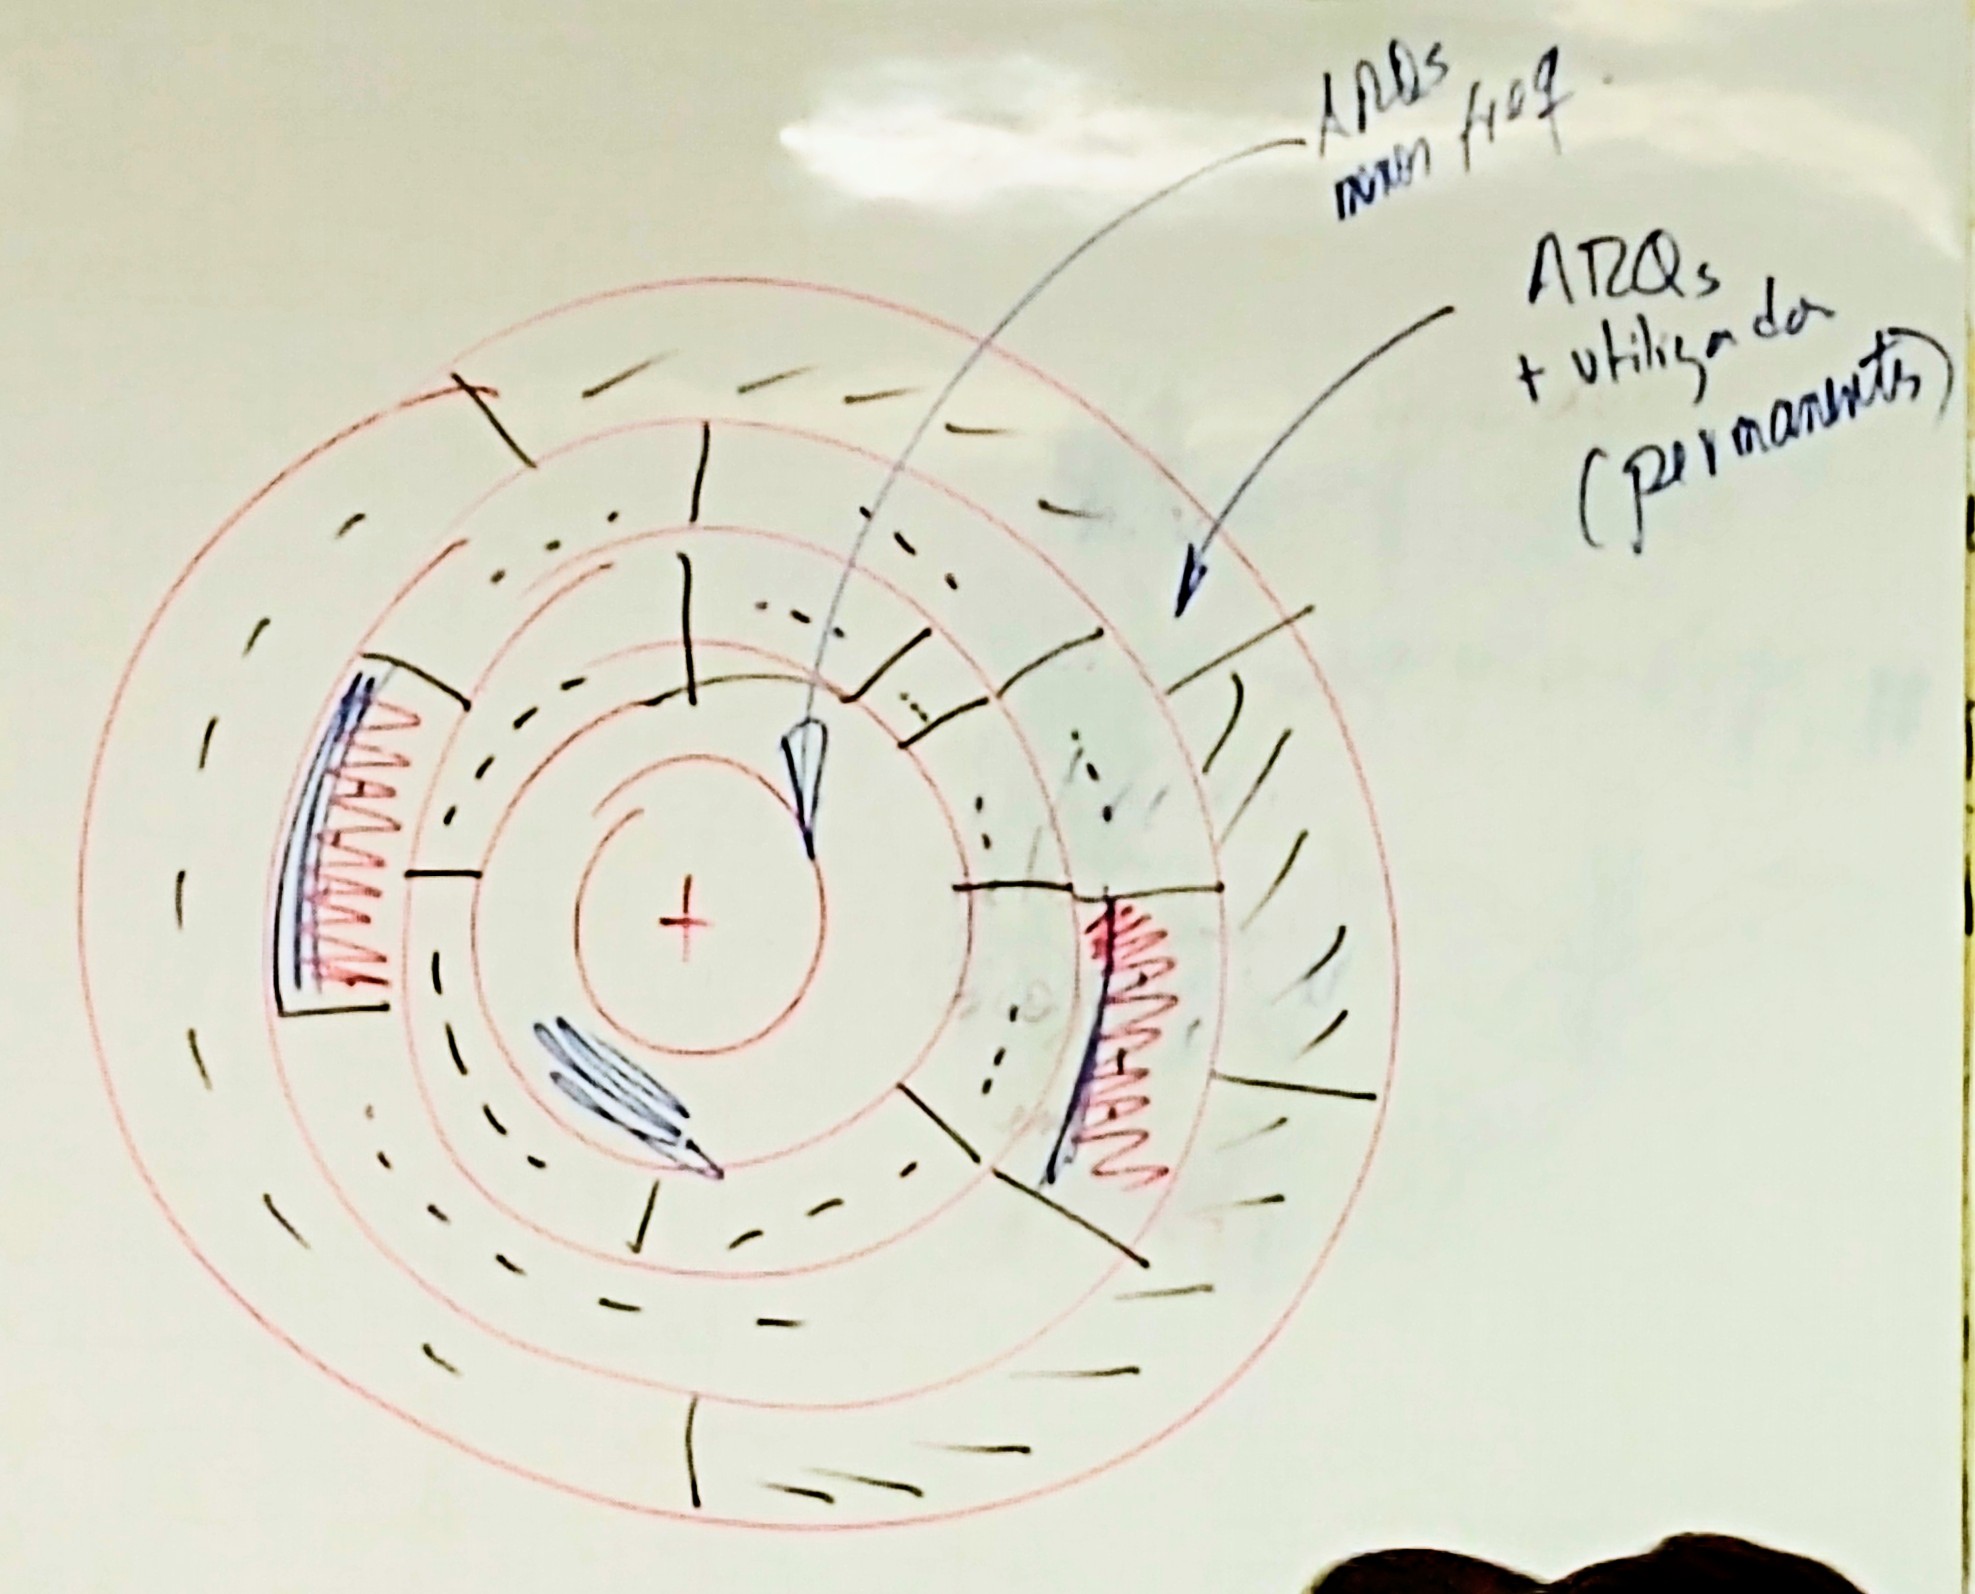 ARQs
menos freq.
ARQs
+ utilizados
(permanents)